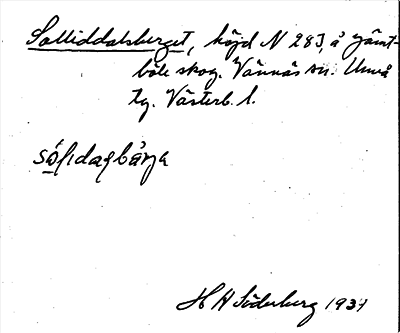 Solliddalsberget, höjd N 283, å Jämt-
böle skog. Vännäs sn. Umeå
tg. Västerb. l.
H H Söderberg 1937